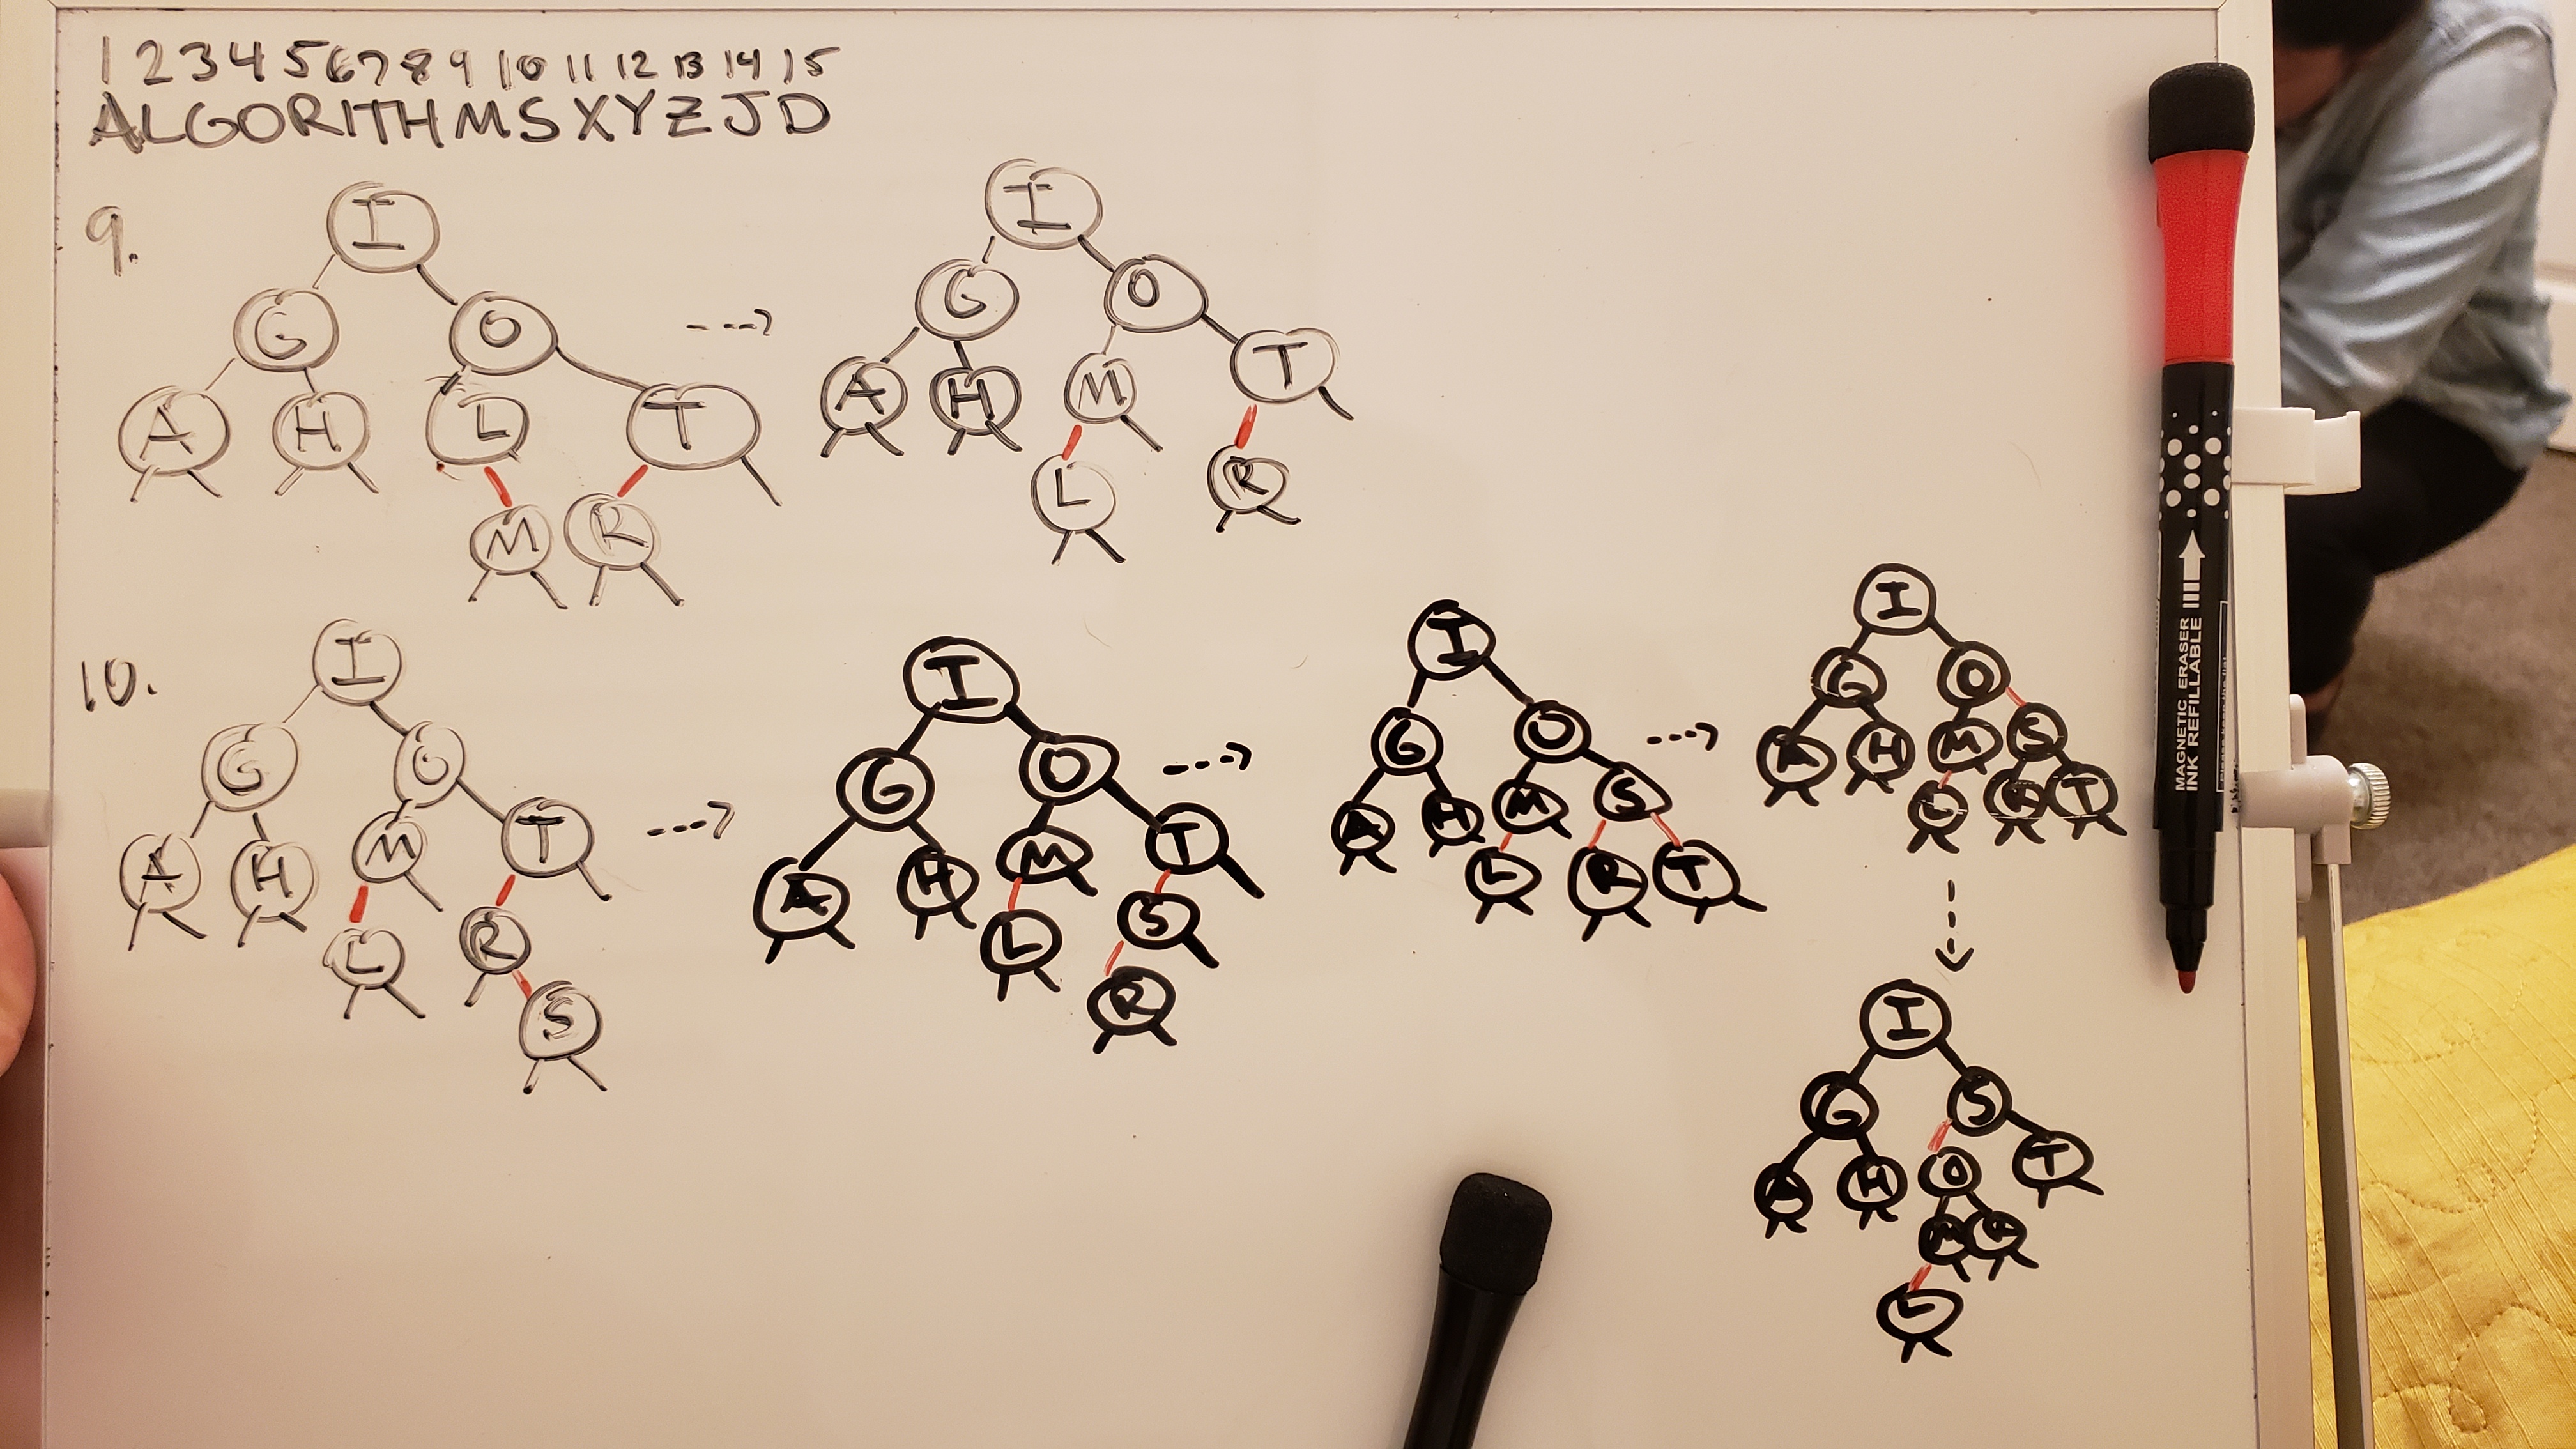 1 2 3 4 5 6 7 8 9 10 11 12 13 14 15
ALGORITHMSXYZJD
9.
I
G O
A H L T
M R
I
G O
A H M T
L R
10.
I
G O
A H M T
L R
S
I
G O
A H M T
L S
R
I
G O
A H M S
L R T
I
G O
A H M S
L R T
I
G S
A H O T
M R
L
MAGNETIC ERASER
INK REFILLABLE